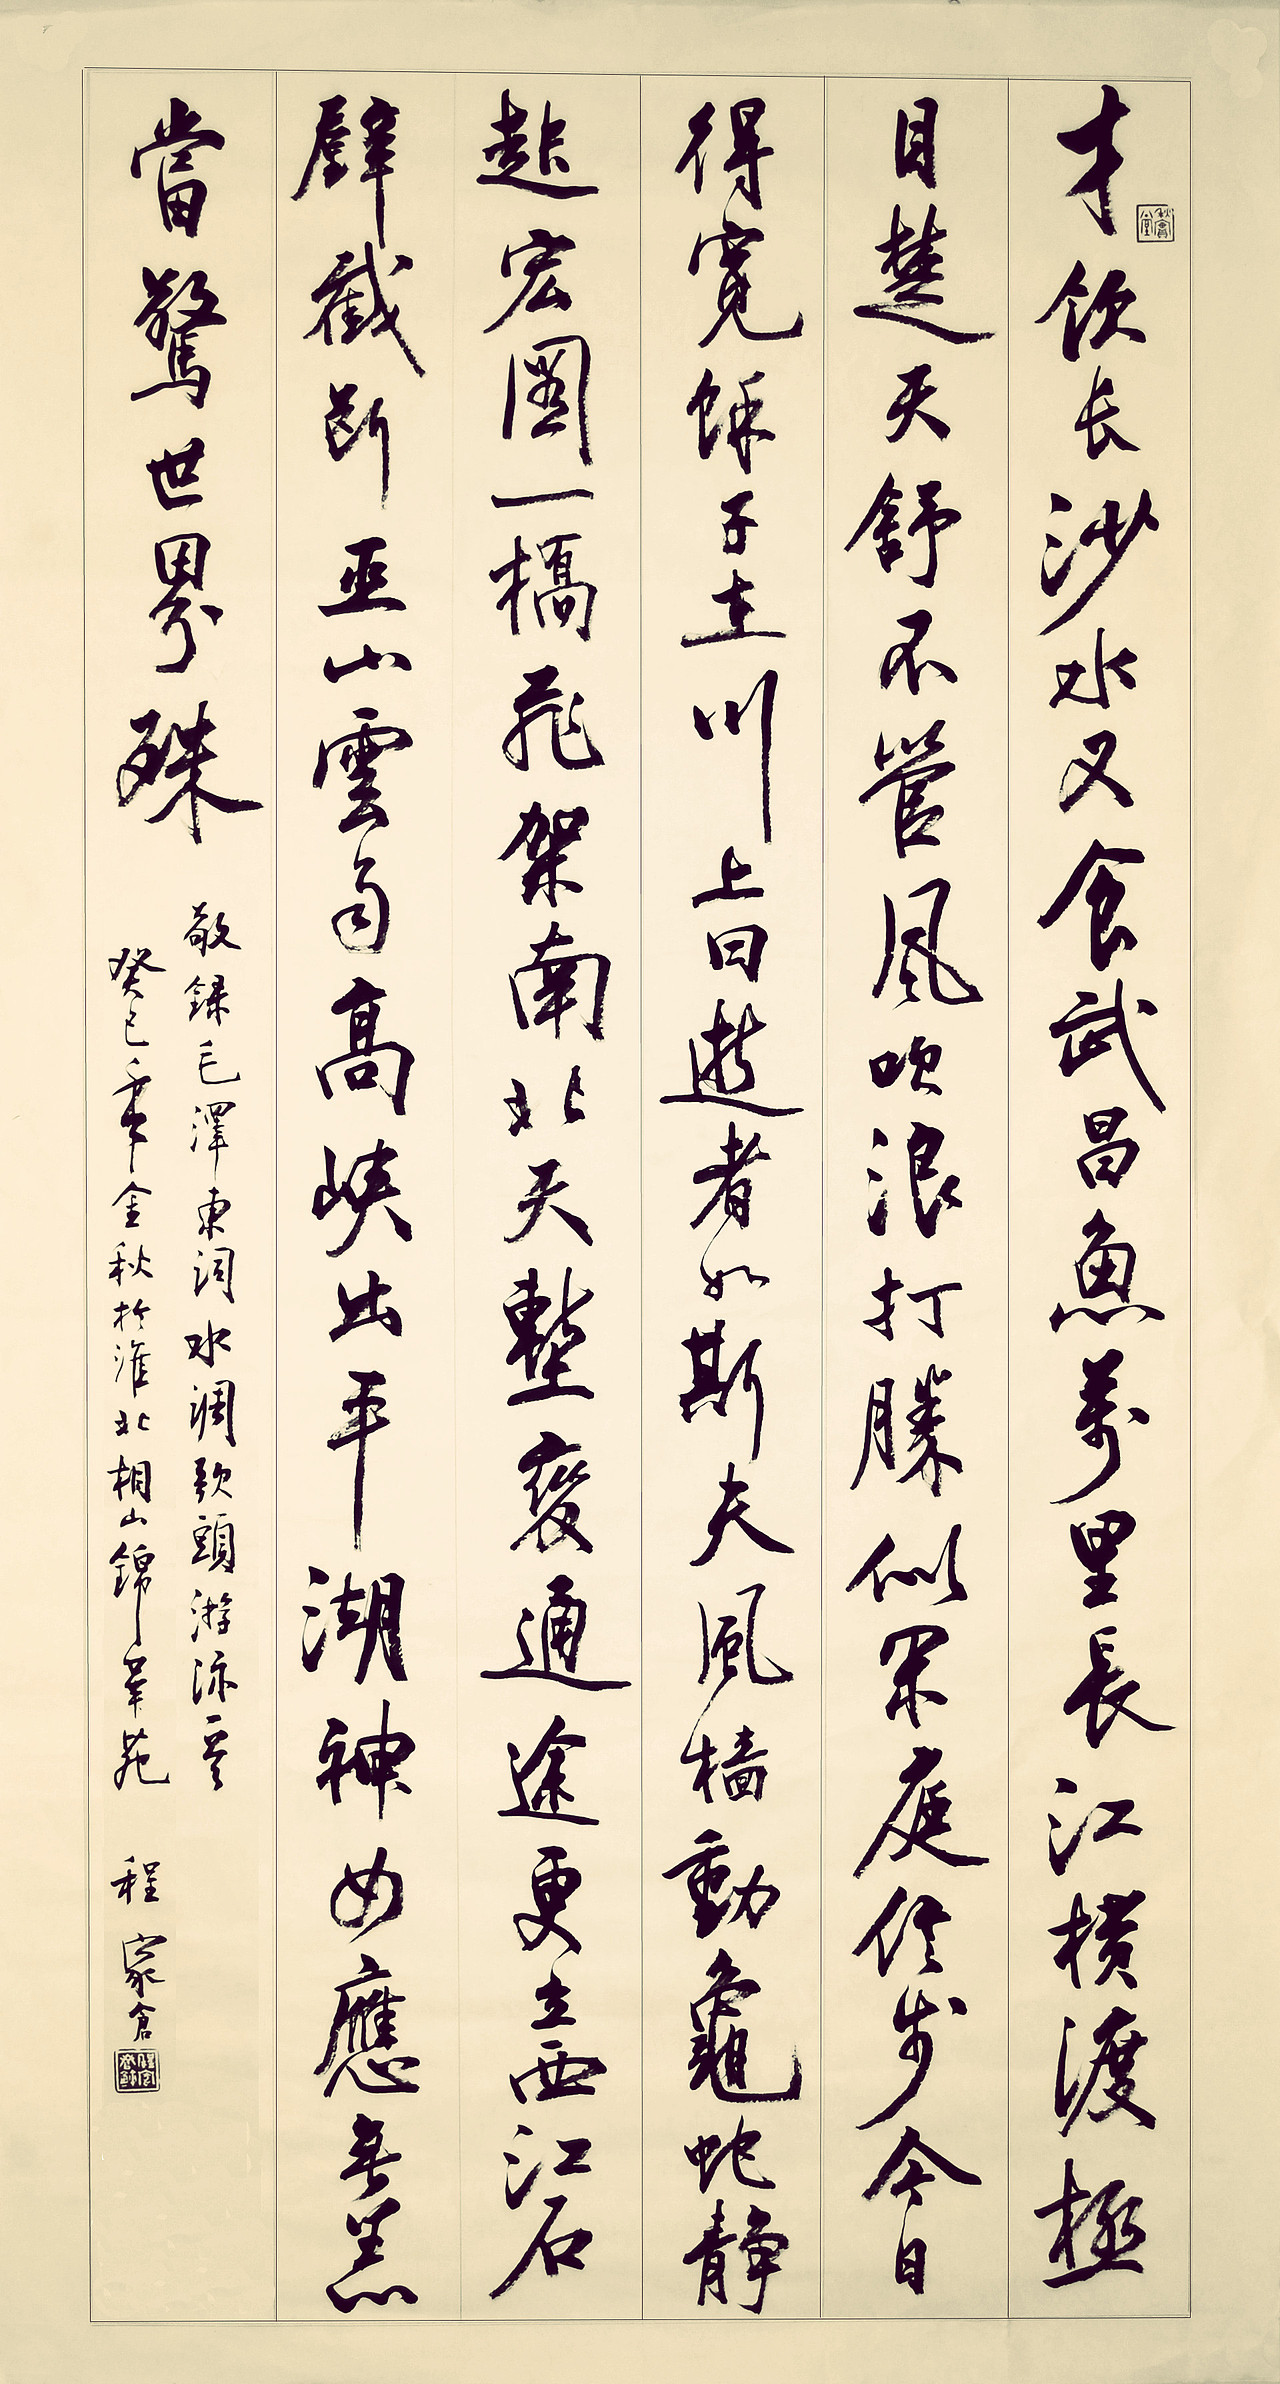 才飲长沙水又食武昌魚萬里長江横渡極
目楚天舒不管風吹浪打勝似閑庭信步今日
得寬馀子在川上曰逝者如斯夫風檣動龜蛇静
起宏圖一橋飛架南北天塹變通途更立西江石
壁截斷巫山雲雨高峽出平湖神女應無恙
當驚世界殊
敬録毛澤東詞水調歌頭游泳一首
癸巳年金秋於淮北相山錦華苑 程家倉